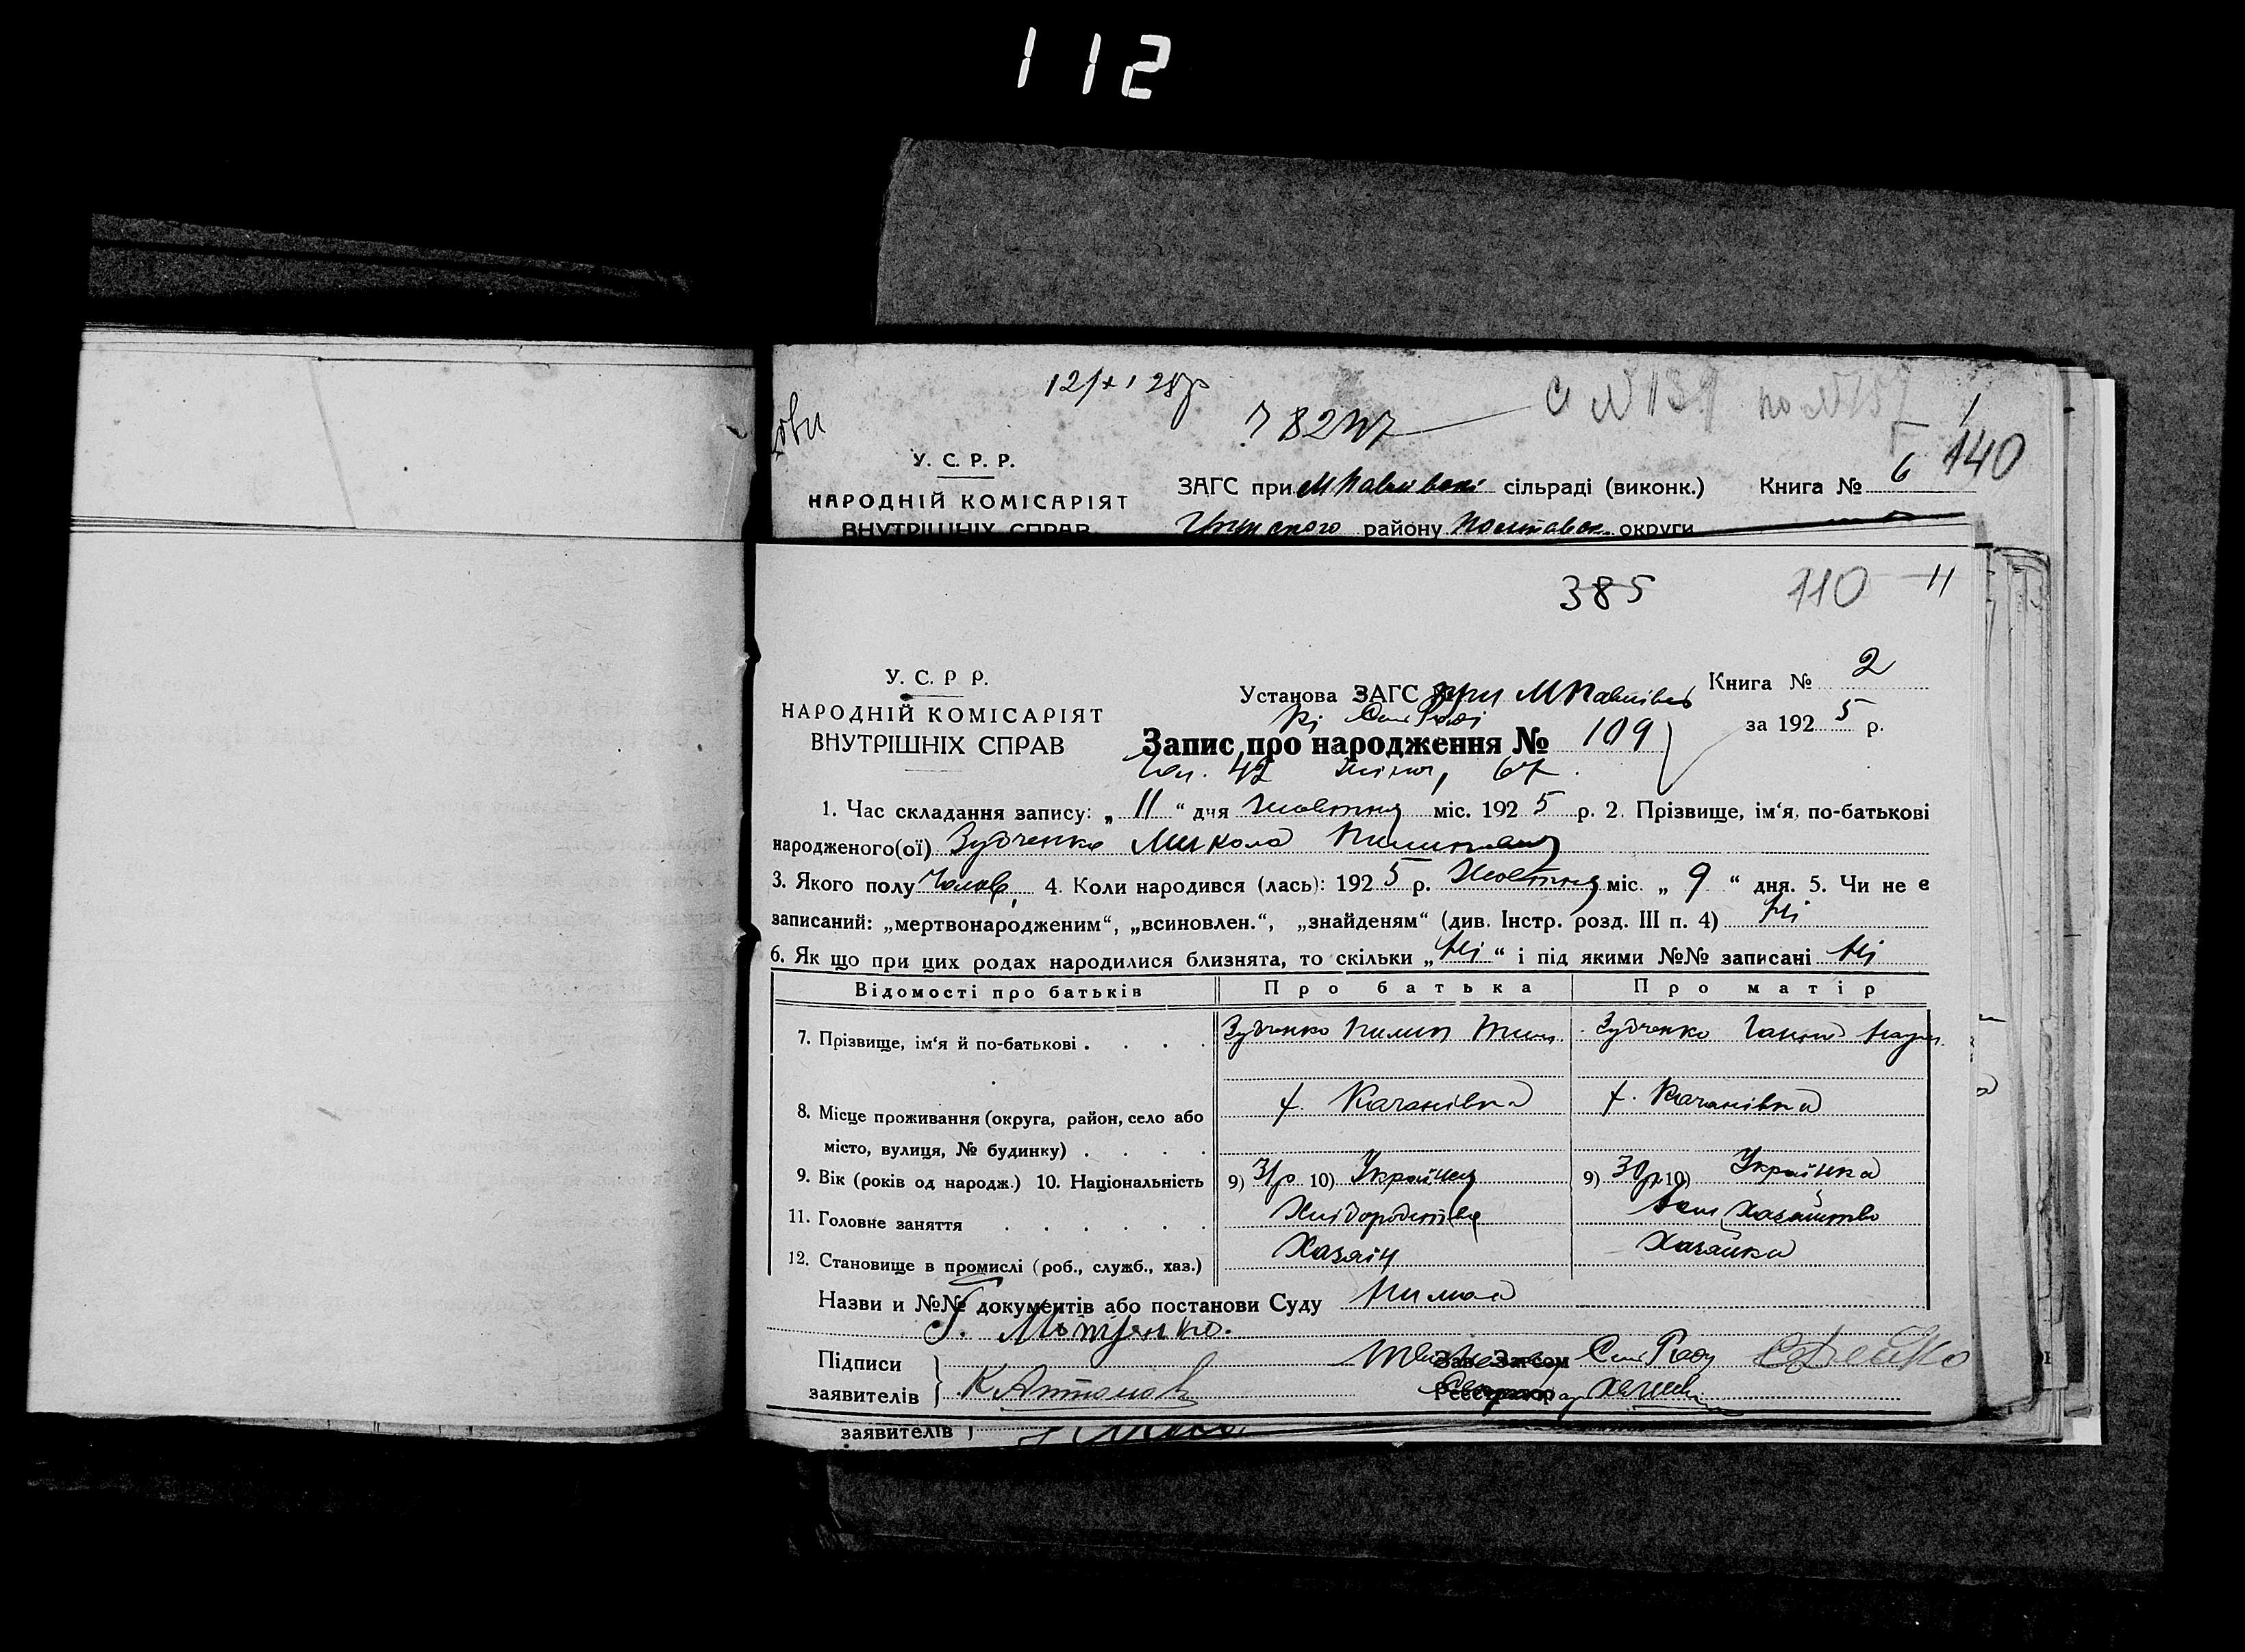 112
385
110
11
У. С. Р. Р.
НАРОДНІЙ КОМІСАРІЯТ
ВНУТРІШНІХ СПРАВ
ЗАГС при сільраді (виконк.) Книга № 6
140
району Полтавськ. округи
У. С. Р. Р.
НАРОДНІЙ КОМІСАРІЯТ
ВНУТРІШНІХ СПРАВ
Установа ЗАГС при М Павлівсь
Книга № 2
кі Сіл Раді
за 1925 р.
Запис про народження № 109
Чол. 42 жіноч, 67.
1. Час складання запису: „ 11 “ дня Жовтня міс. 1925 р. 2. Прізвище, ім‘я, по-батькові
народженого(ої) Зубченко Микола Пилипович
3. Якого полу Чолов, 4. Коли народився (лась): 1925 р. Жовтня міс. „ 9 “ дня. 5. Чи не є
записаний: „мертвонародженим“, „всиновлен.“, „знайденям“ (див. Інстр. розд. III п. 4) Ні
6. Як що при цих родах народилися близнята, то скільки „Ні“ і під якими №№ записані Ні
Відомості про батьків Про батька Про матір
7. Прізвище, ім‘я й по-батькові . . . . Зубченко Пилип Зубченко Ганна
8. Місце проживання (округа, район, село або х. Качанівка х. Качанівка
місто, вулиця, № будинку) . . . .
9. Вік (років од народж.) 10. Національність 9) 31р 10) Українец 9) 30р 10) Українка
11. Головне заняття . . . . . . Хлібородство хазяйство
12. Становище в промислі (роб., служб., хаз.) Хазяін Хазяйка
Назви и №№ документів або постанови Суду Нима
Підписи
заявителів
К Антонов
Зав. Загсом Сіл Ради
Реєстратор
заявителів